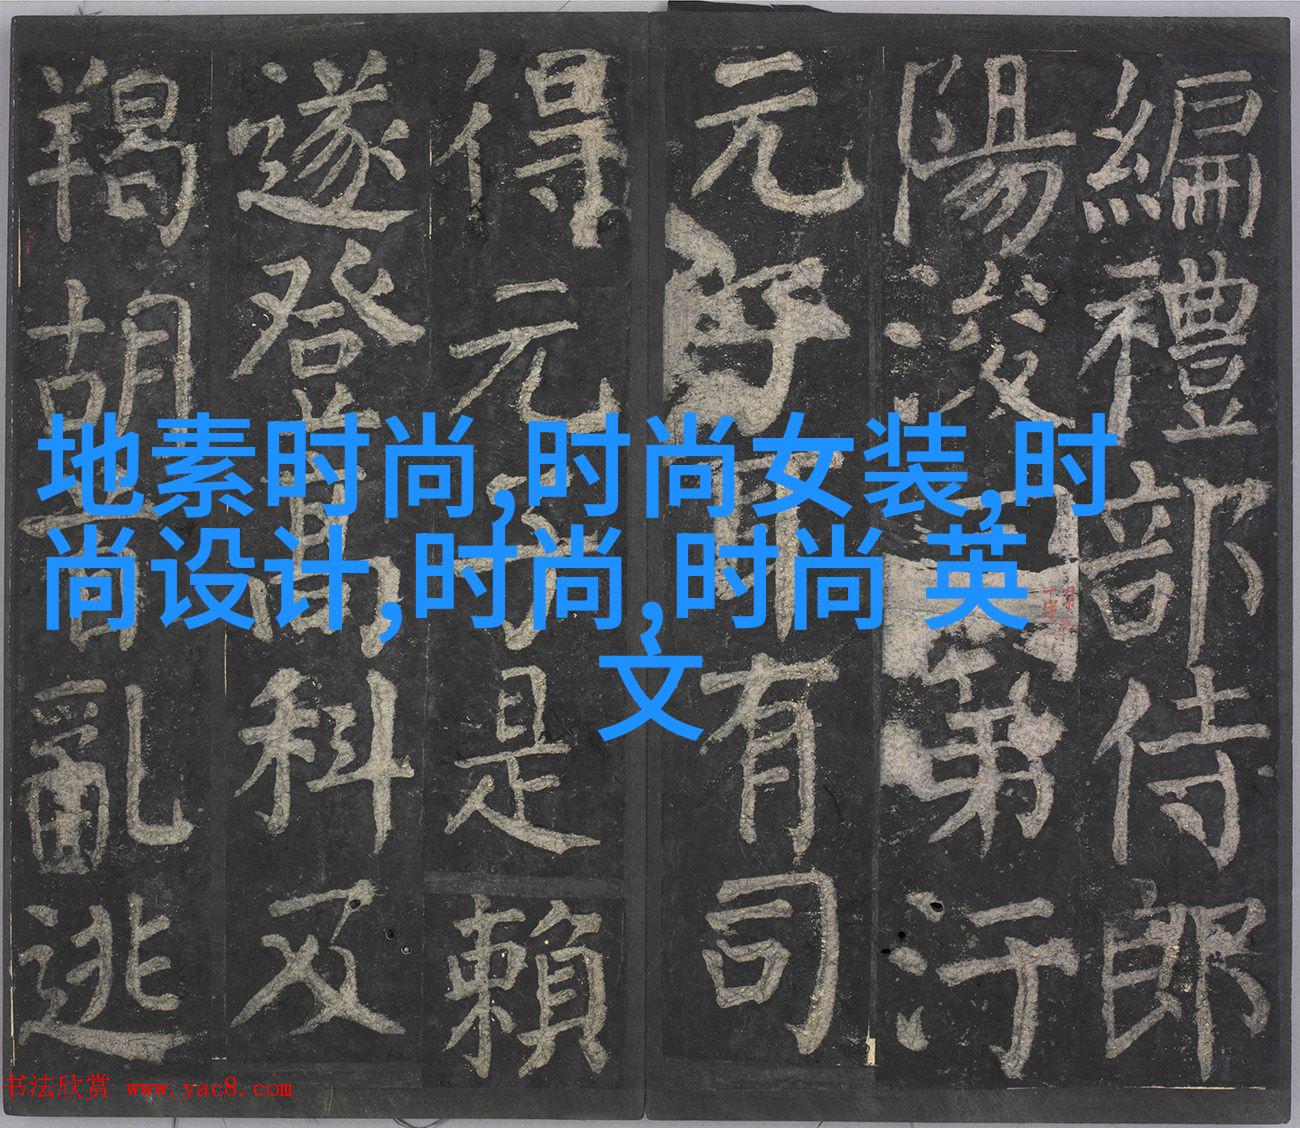 編禮部侍郎
陽浚
第汙
元好
有司
得元
是賴
遂登高科及
羯胡
亂逃
地素时尚,时尚女装,时
尚设计,时尚,时尚 英
文
书法欣赏 www.yac8.com